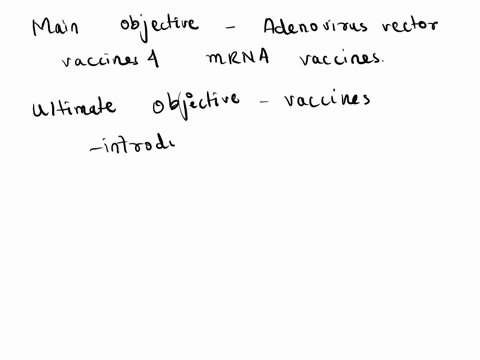 Main objective - Adenovirus vector
vaccines & mRNA vaccines.
Ultimate objective - vaccines
-introdu